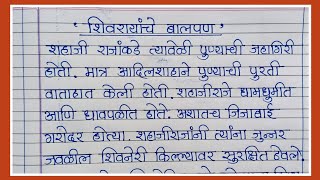 ' शिवरायांचे बालपण '
शहाजी राजांकडे त्यावेळी पुण्याची जहागिरी
होती. मात्र आदिलशाहाने पुण्याची पुरती
वाताहात केली होती. शहाजीराजे धामधुमीत
आणि धावपळीत होते. अशातच जिजाबाई
गरोदर होत्या. शहाजीराजांनी त्यांना जुन्नर
जवळील शिवनेरी किल्ल्यावर सुरक्षित ठेवले.